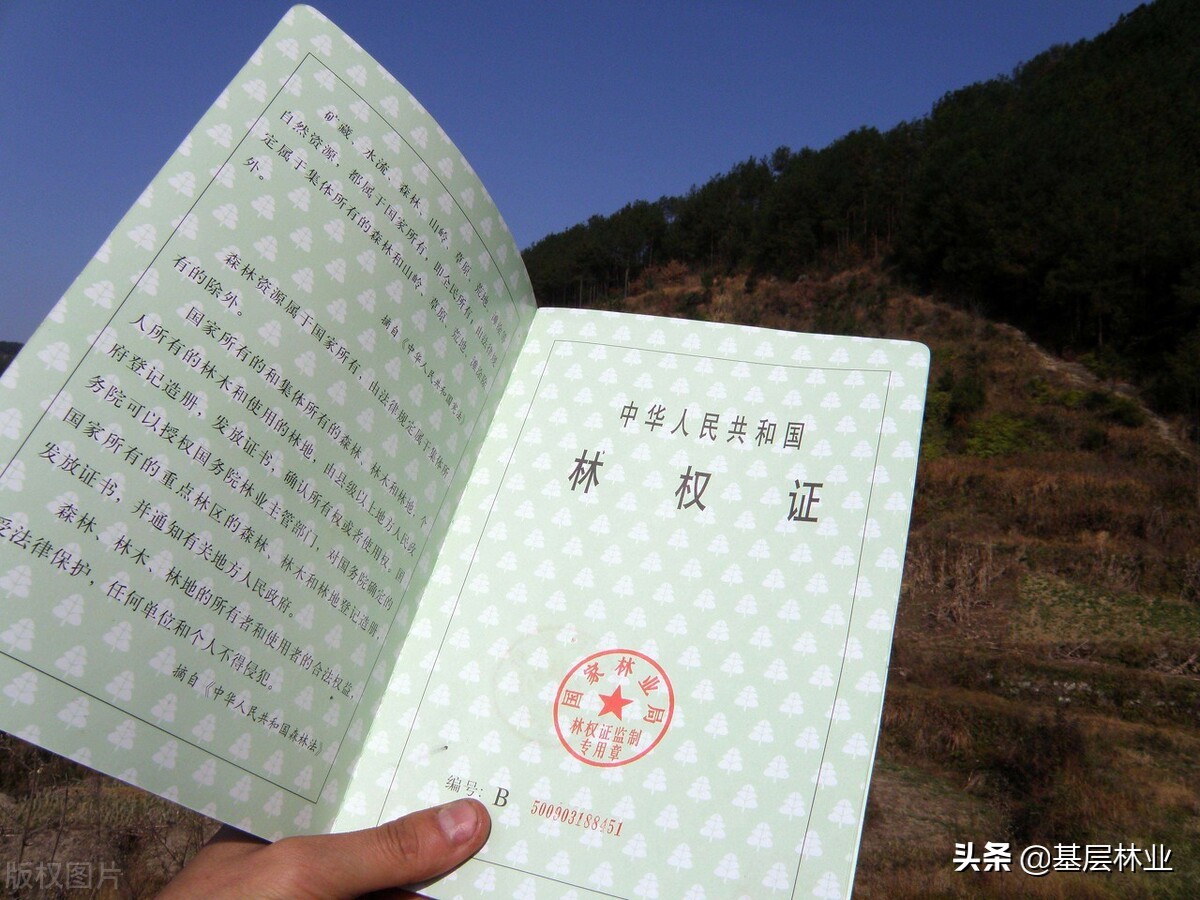 矿藏、水流、森林、山岭、草原、荒地、滩涂等
自然资源，都属于国家所有，即全民所有；由法律规
定属于集体所有的森林和山岭、草原、荒地、滩涂除
外。
摘自《中华人民共和国宪法》
森林资源属于国家所有，由法律规定属于集体所
有的除外。
国家所有的和集体所有的森林、林木和林地，个
人所有的林木和使用的林地，由县级以上地方人民政
府登记造册，发放证书，确认所有权或者使用权。国
务院可以授权国务院林业主管部门，对国务院确定的
国家所有的重点林区的森林、林木和林地登记造册，
发放证书，并通知有关地方人民政府。
森林、林木、林地的所有者和使用者的合法权益，
受法律保护，任何单位和个人不得侵犯。
摘自《中华人民共和国森林法》
中华人民共和国
林权证
国家林业局
林权证监制
专用章
编号：B 500903188451
版权图片
头条 @基层林业